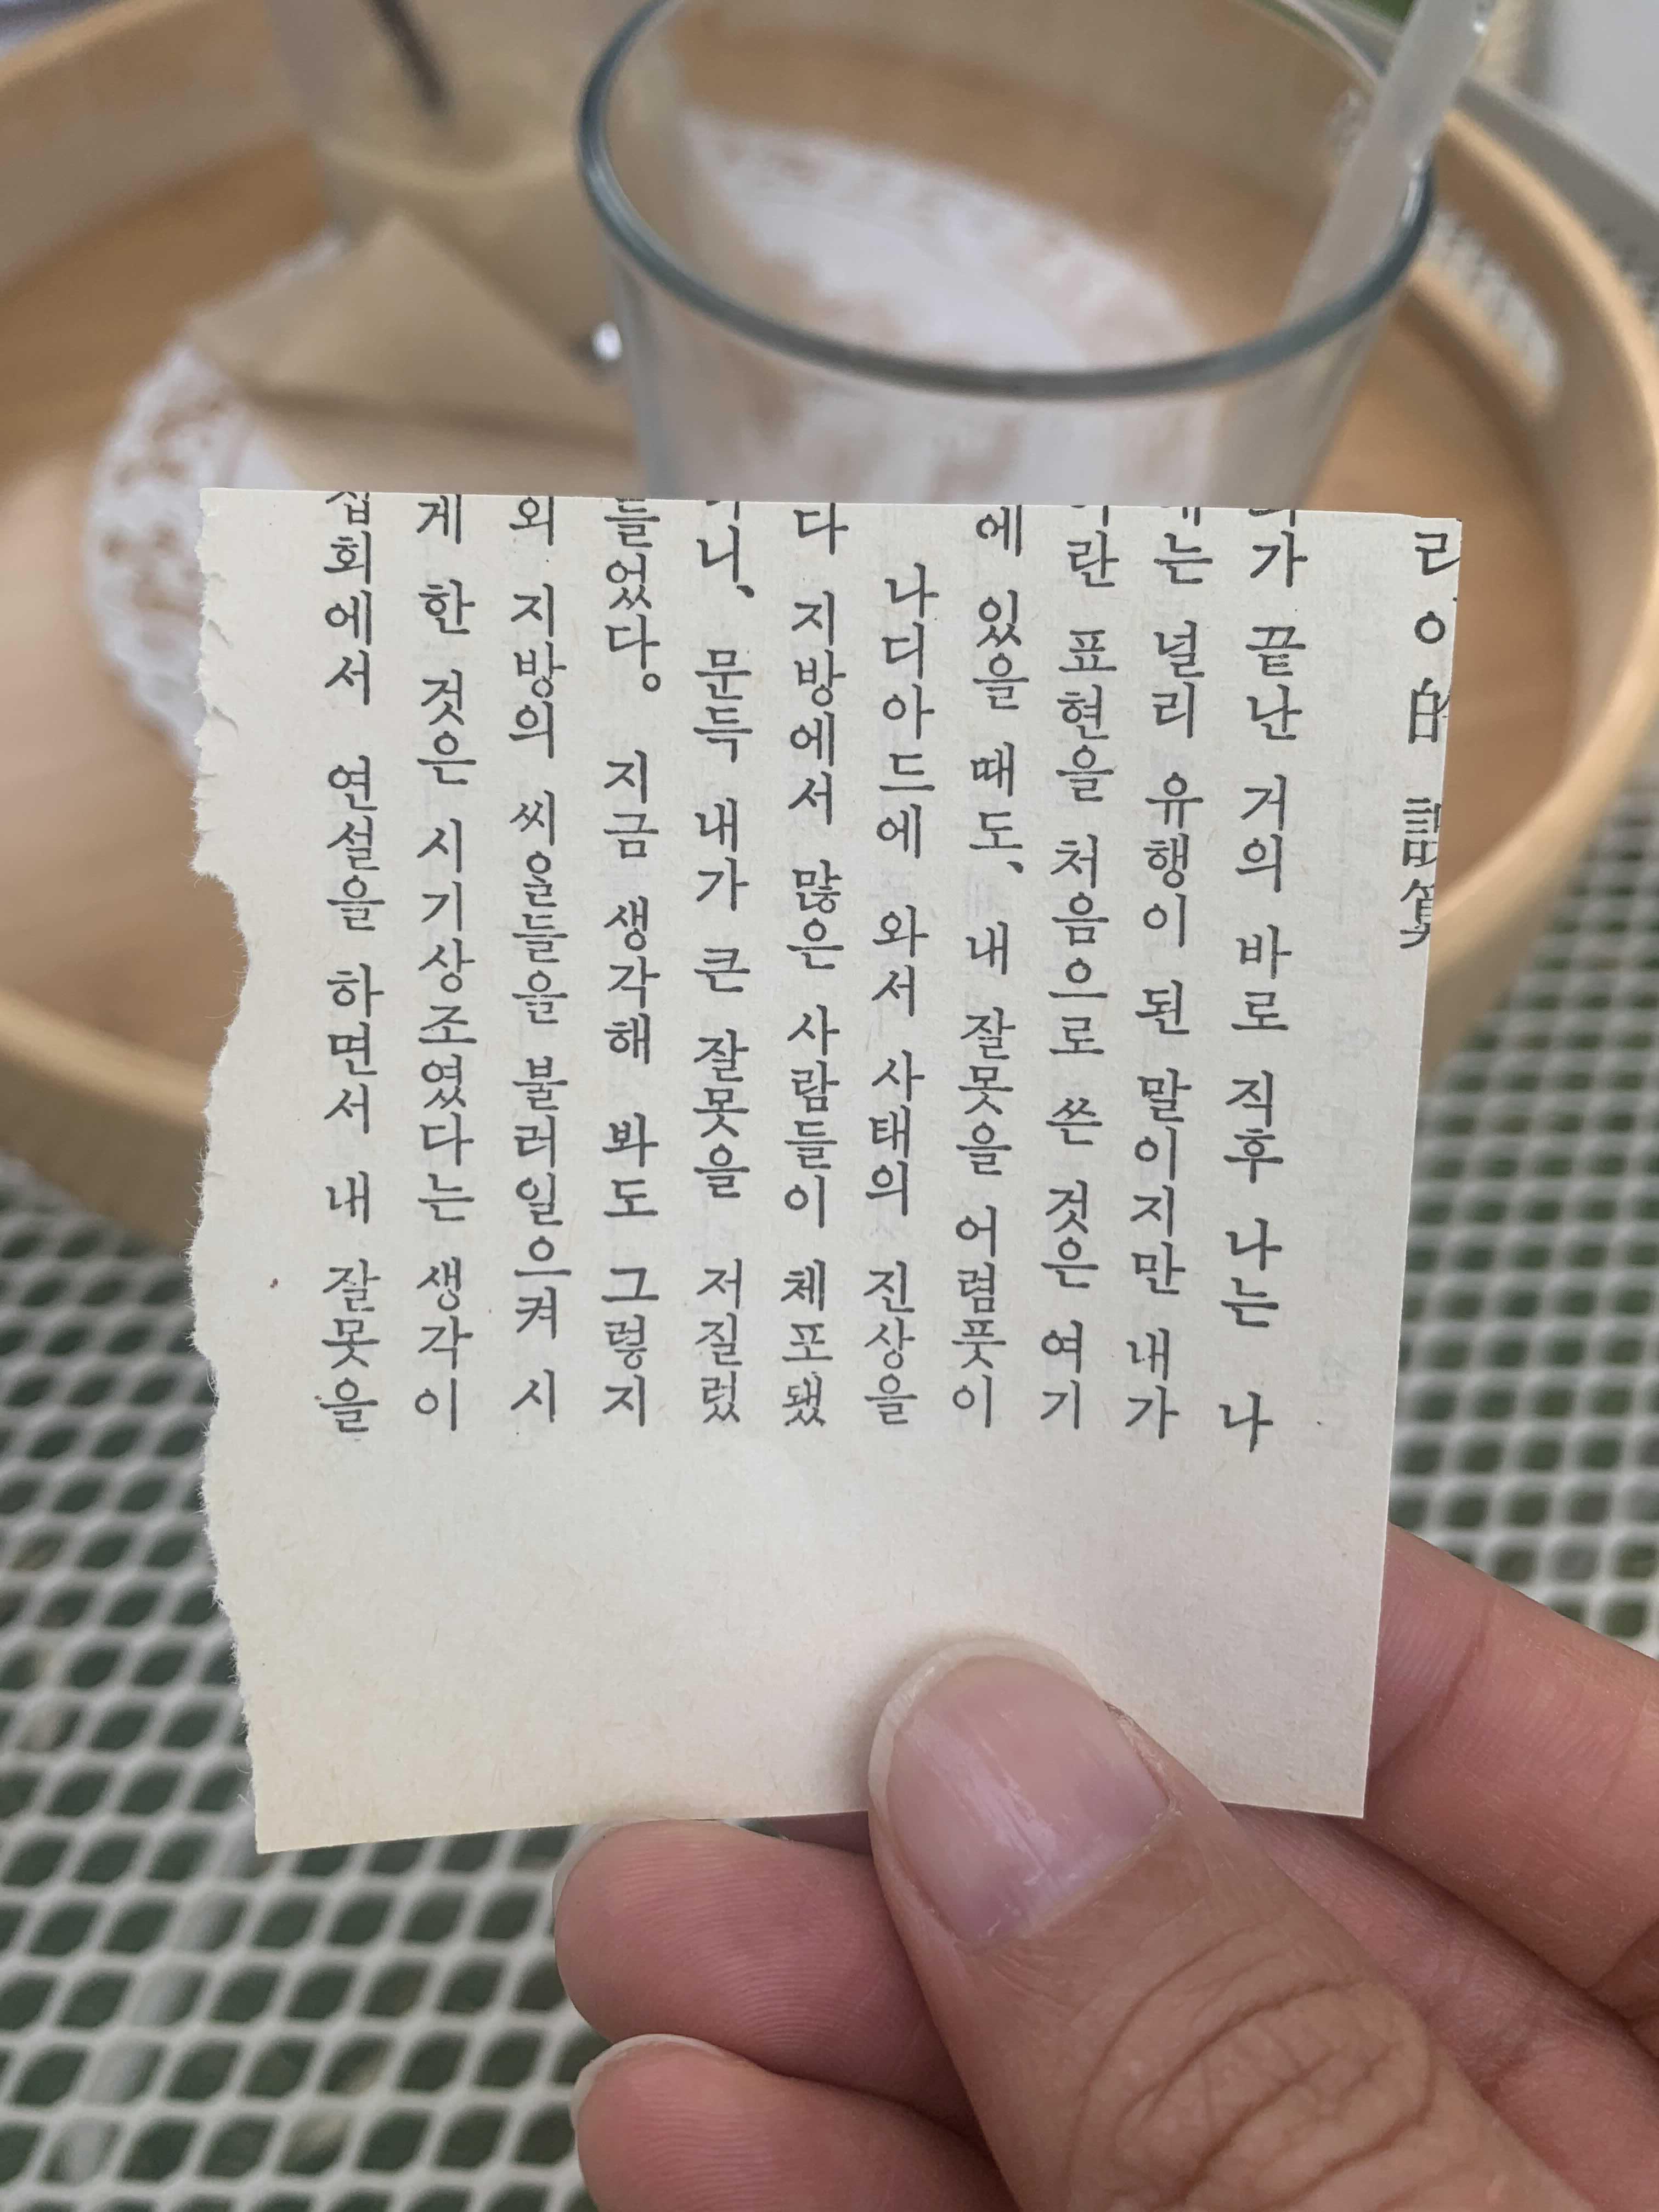 가 끝난 거의 바로 직후 나는 나
는 널리 유행이 된 말이지만 내가
란 표현을 처음으로 쓴 것은 여기
에 있을 때도、내 잘못을 어렴풋이
나디아드에 와서 사태의 진상을
다 지방에서 많은 사람들이 체포됐
니、문득 내가 큰 잘못을 저질렀
들었다。지금 생각해 봐도 그렇지
외 지방의 씨ᄋᆞᆯ들을 불러일으켜 시
게 한 것은 시기상조였다는 생각이
집회에서 연설을 하면서 내 잘못을